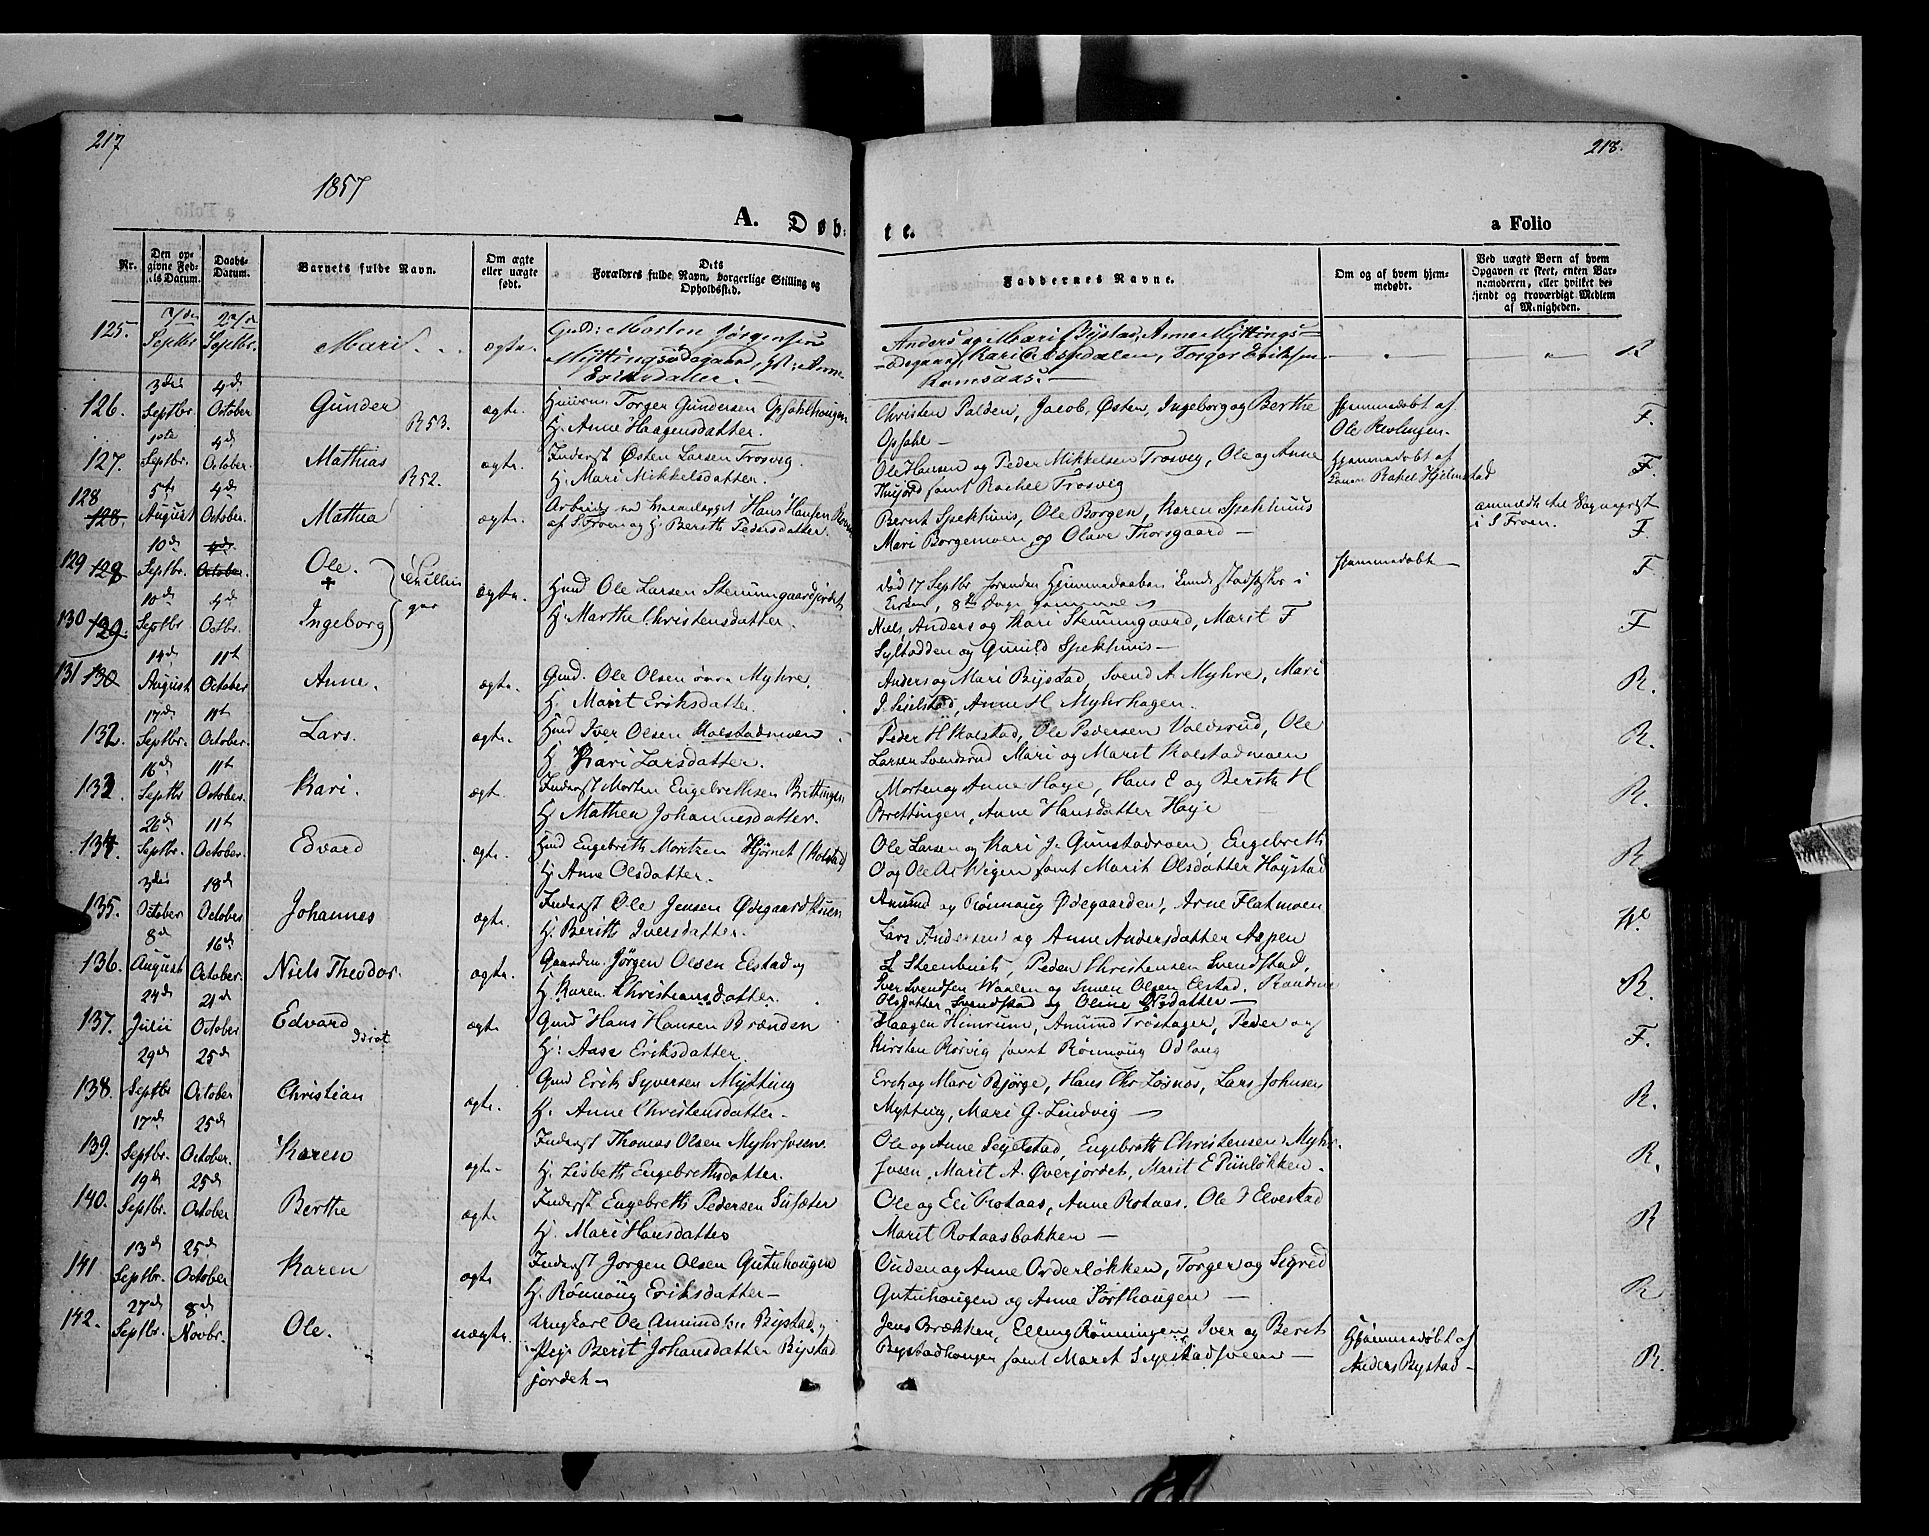 217
218.
1857
A. Døb-
te.
a Folio
Nr.
Den op-
givne Fød-
sels Datum.
Daabs-
Datum.
Barnets fulde Navn.
Om ægte
eller uægte
født.
Dets
Forældres fulde Navn, borgerlige Stilling og
Opholdssted.
Faddernes Navne.
Om og af hvem hjem-
medøbt.
Ved uægte Børn af hvem
Opgaven er skeet, enten Bar-
nemoderen, eller hvilket be-
kjendt og troværdigt Medlem
af Menigheden.
125. Septbr. Septbr. Mari ægte. Gmd: Morten Jørgensen
Myttingsødegaard, H: Anne
Eriksdatter.
Anders og Mari Bystad, Anne Myttings-
ødegaard, Kari Aspedalen, Torger Eriksen
Ramsaas. R
126. 3die Septbr. 4d October Gunder R53. ægte. Torger Gundersen Opsahlhaugen
H. Anne Haagensdatter.
Christen Palden, Jacob, Østen, Ingeborg og Berthe
Opsahl
Hjemmedøbt af
Ole Revlingen. F.
127. 10de Septbr. 4d October. Mathias R52. ægte. Inderst Østen Larsen Trosvig.
H. Mari Mikkelsdatter.
Ole Hansen og Peder Mikkelsen Trosvig, Ole og Anne
samt Rachel Trosvig
Hjemmedøbt af
Rakel Hjelmstad F
128 128. 5t August 4d October. Mathea ægte. Hans Hansen
af S. Froen og H. Berith Pedersdatter.
Bernt Spekhuus, Ole Borgen, Karen Spekhuus
Mari Borgemoen, og Olave Thorsgaard
anmeldt til Sogneprest
i S Froen. F.
129 129 10d Septbr. 4d October. Ole. Tvillin
ger ægte. Hmd Ole Larsen Stenumgaardjordet
H. Marthe Christensdatter.
død 17 Septbr
8te Dage gammel
Hjemmedøbt F
130 129. 10d Septbr. 4d Octbr. Ingeborg
Niels, Anders og Kari Stenumgaard, Marit F
Syltødden og Gunild Spekhuus F
131 130 14d August 11t October Anne. ægte. Gmd. Ole Olsen øvre Myhre.
H. Marit Eriksdatter.
Anders og Mari Bystad, Svend A Myhre, Mari
J. Seielstad, Anne H Myhrhagen. R.
132. 17d Septbr. 11t October. Lars. ægte. Hmd Iver Olsen Kolstadmoen
H. Kari Larsdatter.
Peder H Kolstad, Ole Pedersen Voldsrud, Ole
Larsen Svendsrud Mari og Marit Kolstadmoen R.
133. 16d Septbr 11t October. Kari. ægt. Inderst Morten Engebrethsen Brettingen
H. Mathea Johannesdatter.
Morten og Anne Høje, Hans E og Berith H
Brettingen, Anne Hansdatter Høje R.
134. 26d Septbr. 11t October. Edvard ægt. Hmd Engebreth Moritzen Hjørnet (Kolstad)
H. Anne Olsdatter.
Ole Larsen og Kari J. Gunstadroen, Engebreth
O og Ole A. Wigen samt Marit Olsdatter Høystad R
135. 3die October 18d October Johannes ægt. Inderst Ole Jensen Ødegaardstuen
H. Berith Iversdatter.
Amund og Rønnaug Ødegaarden, Arne Flatmoen
Lars Andersen og Anne Andersdatter Aspen W.
136. 8d August 16d October. Niels Theodor. ægte. Gaardm. Jørgen Olsen Elstad og
H. Karen Christiansdatter.
L Steenbuch, Peder Christensen Svendstad,
Iver Svendsen Waalen og Simen Olsen Elstad. Randine
Olsdatter Svendstad og Oline Nsdatter R.
137. 24d Julii 21d October Edvard Idiot ægt. Gmd Hans Hansen Brænden
H: Aase Eriksdatter.
Haagen Heimrum, Amund Trøstager, Peder og
Kirsten Rørvig samt Rønnaug Odlaug F.
138. 29d Septbr 25d October Christian ægte. Gmd Erik Syversen Mytting
H. Anne Christensdatter.
Erik og Mari Bjørge, Hans Chr Løsnæs, Lars Johnsen
Mytting, Mari G. Lindvig R.
139. 17d Septbr. 25d October. Karen ægt. Inderst Thomas Olsen Myhrsveen.
H. Lisbeth Engebrethsdatter.
Ole og Anne Seielstad, Engebreth Christensen Myhr-
sveen, Marit A. Øverjordet, Marit E Piinløkken. R.
140. 19d Septbr. 25d October Berthe ægt. Inderst Engebreth Pedersen Susæter
H. Mari Hansdatter
Ole og Eli Rotaas, Anne Rotaas. Ole I Elvestad
Marit Rotaasbakken R
141 13d Septbr. 25d October Karen ægte Inderst Jørgen Olsen Gutuhaugen
H. Rønnaug Eriksdatter
Ouden og Anne Orderløkken, Torger og Sigred
Gutuhaugen og Anne Sørthaugen R
142. 27d Septbr. 8d Novbr. Ole. uægte. Ungkarl Ole Amundsen Bystad og
Pige Berit Johansdatter Bystad
jordet
Jens Brækken, Elling Rønningen Iver og Berit
Bystadhaugen samt Maret Seielstadsveen
Hjemmedøbt af
Anders Bystad R.